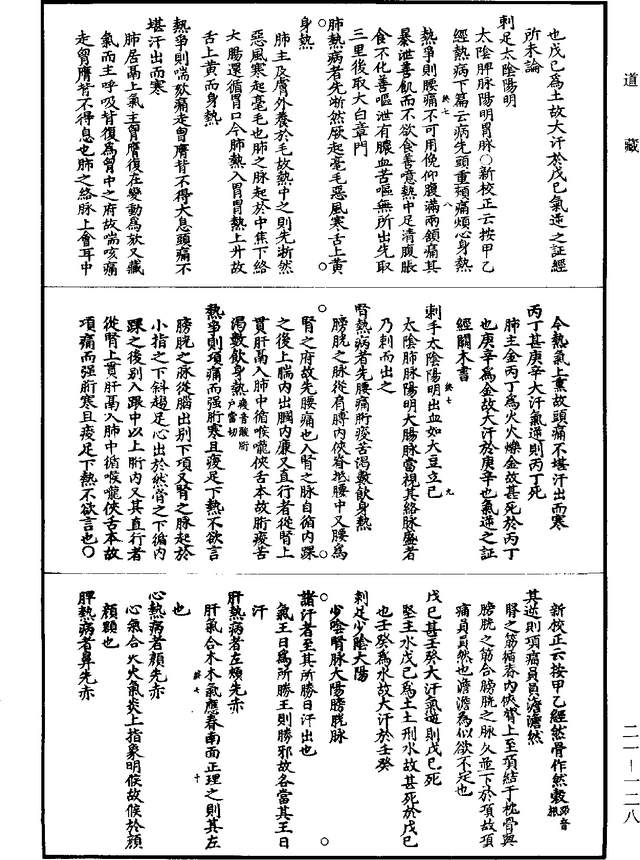 道藏
也戊己為土故大汗於戊己氣逆之証經
所未論
刺足太陰陽明
太陰脾脉陽明胃脉○新校正云按甲乙
經熱病下篇云病先頭重頰痛煩心身熱
熱爭則腰痛不可用俛仰腹滿兩頷痛甚
暴泄善飢而不欲食善噫熱中足清腹脹
食不化善嘔泄有膿血苦嘔無所出先取
三里後取太白章門
肺熱病者先淅然厥起毫毛惡風寒舌上黃
身熱
肺主及膚外養於毛故熱中之則先淅然
惡風寒起毫毛也肺之脉起於中焦下絡
大腸還循胃口今肺熱入胃胃熱上升故
舌上黃而身熱
熱爭則喘欬痛走胷膺背不得大息頭痛不
堪汗出而寒
肺居鬲上氣主胷膺復在變動為欬又藏
氣而主呼吸背復為胷中之府故喘欬痛
走胷膺背不得息也肺之絡脉上會耳中
今熱氣上熏故頭痛不堪汗出而寒
丙丁甚庚辛大汗氣逆則丙丁死
肺主金丙丁為火火爍金故甚死於丙丁
也庚辛為金故大汗於庚辛也氣逆之証
經闕本書
刺手太陰陽明出血如大豆立已
太陰肺脉陽明大腸脉當視其絡脉盛者
乃刺而出之
腎熱病者先腰痛䯒痠苦渴數飲身熱
膀胱之脉從肩髆內俠脊抵腰中又腰為
腎之府故先腰痛也入腎之脉自循內踝
之後上腨內出膕內廉又直行者從腎上
貫肝鬲入肺中循喉嚨俠舌本故䯒痠苦
渴數飲身熱
熱爭則項痛而强䯒寒且痠足下熱不欲言
膀胱之脉從腦出别下項又腎之脉起於
小指之下斜趨足心出於然骨之下循內
踝之後别入跟中以上䯒內又其直行者
從腎上貫肝鬲入肺中循喉嚨俠舌本故
項痛而强䯒寒且痠足下熱不欲言也○
新校正云按甲乙經然骨作然糓
其逆則項痛員員澹澹然
腎之筋循脊內俠膂上至項結于枕骨與
膀胱之筋合膀胱之脉又並下於項故項
痛員員然也澹澹為似欲不定也
戊己甚壬癸大汗氣逆則戊己死
腎主水戊己為土土刑水故甚死於戊己
也壬癸為水故大汗於壬癸
刺足少陰太陽
少陰腎脉太陽膀胱脉
諸汗者至其所勝日汗出也
氣王日為所勝王則勝邪故各當其王日
汗
肝熱病者左頰先赤
肝氣合木木氣應春南面正理之則其左
頰也
心熱病者顏先赤
心氣合火火氣炎上指象明候故候於顏
顏額也
脾熱病者鼻先赤
二一―一二八